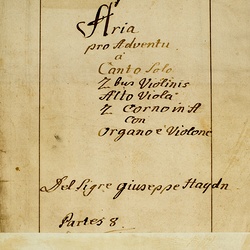 Aria
pro Adventu
à
Canto Solo
2 bus Violinis
Alto Viola
2 Corno in A
con
Organo è Violone
Del Sigre giuseppe Haydn
Partes 8.